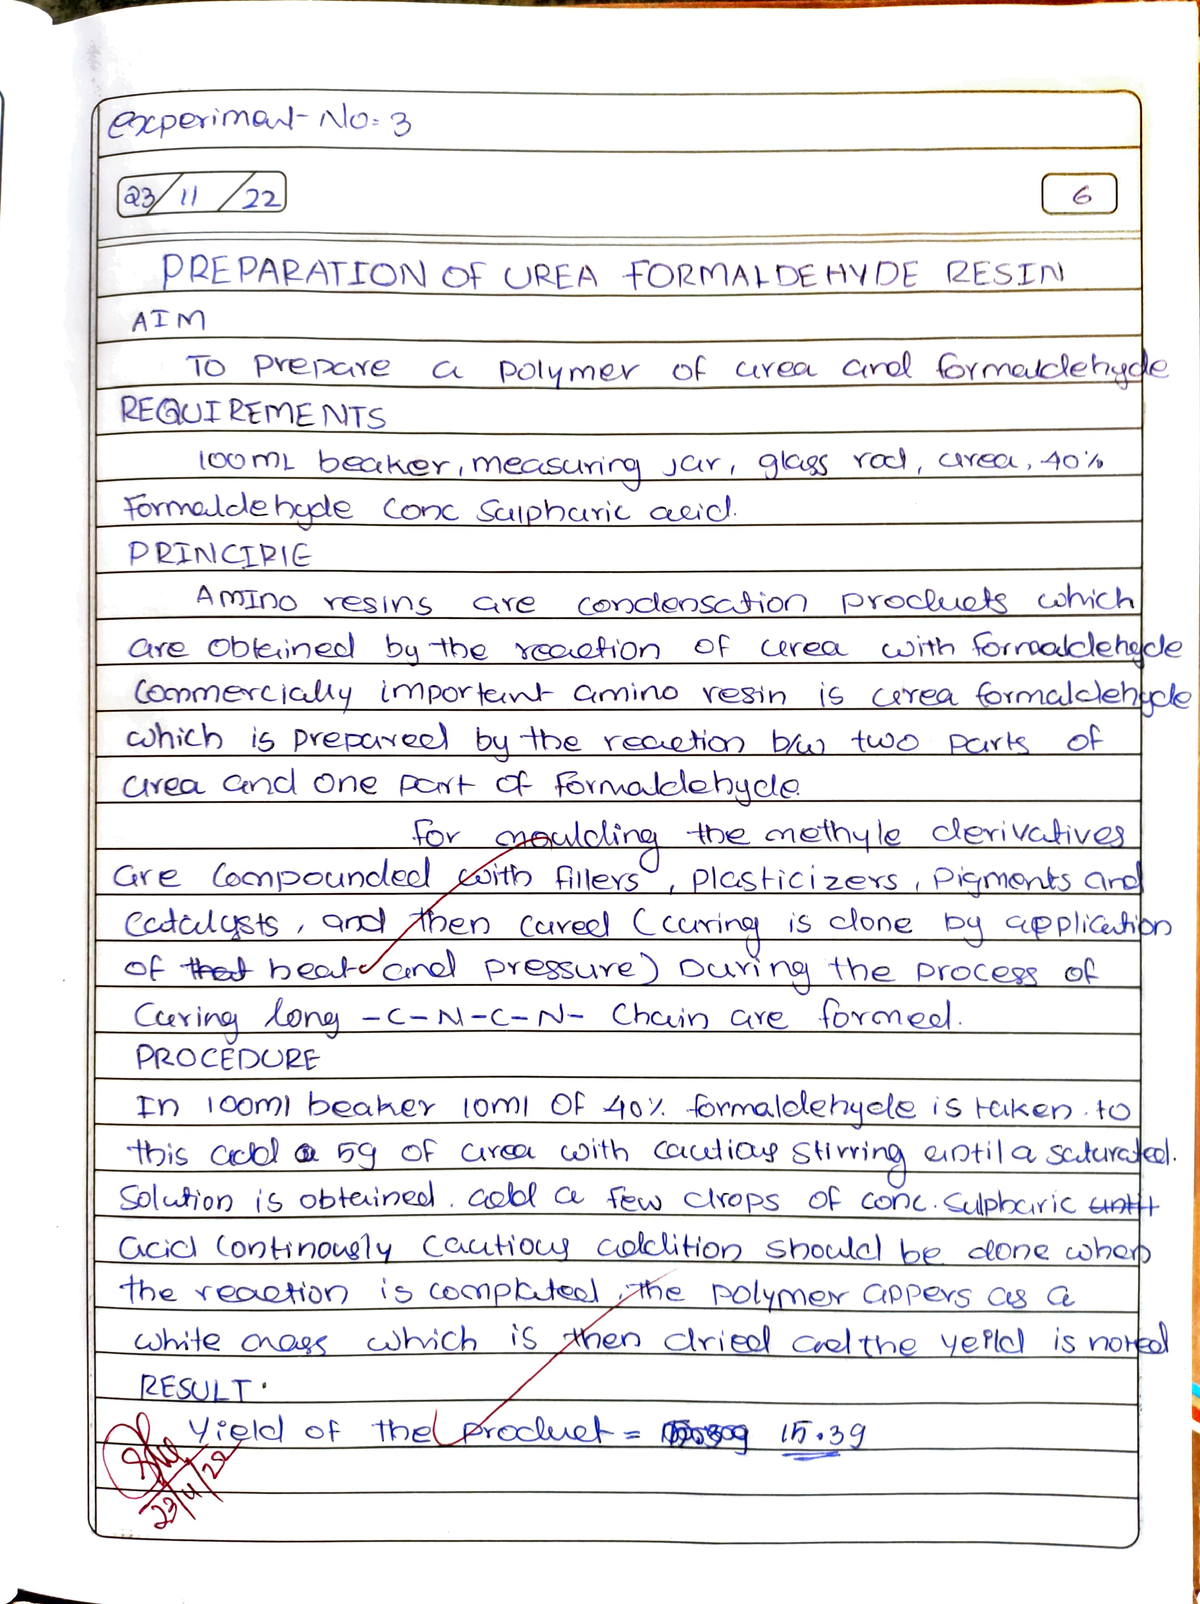 Experiment-No: 3
23/11/22
6
PREPARATION OF UREA FORMALDEHYDE RESIN
AIM
To prepare a polymer of urea and formaldehyde
REQUIREMENTS
100mL beaker, measuring jar, glass rod, urea, 40%
Formaldehyde conc Sulphuric acid.
PRINCIPLE
Amino resins are condensation products which
are obtained by the reaction of urea with formaldehyde
Commercially important amino resin is urea formaldehyde
which is prepared by the reaction b/w two parts of
urea and one part of Formaldehyde.
For moulding the methyle derivatives
are compounded with fillers, plasticizers, pigments and
catalysts, and then cured (curing is done by application
of that heat and pressure) During the process of
Curing long -C-N-C-N- Chain are formed.
PROCEDURE
In 100ml beaker 10ml of 40% formaldehyde is taken. to
this add a 5g of urea with cautious stirring until a saturated.
Solution is obtained. add a few drops of conc. Sulphuric
acid continously cautious addition should be done when
the reaction is completed, the polymer appers as a
white mass which is then dried and the yeild is noted
RESULT.
Yield of the product = 15.3g
23/11/22